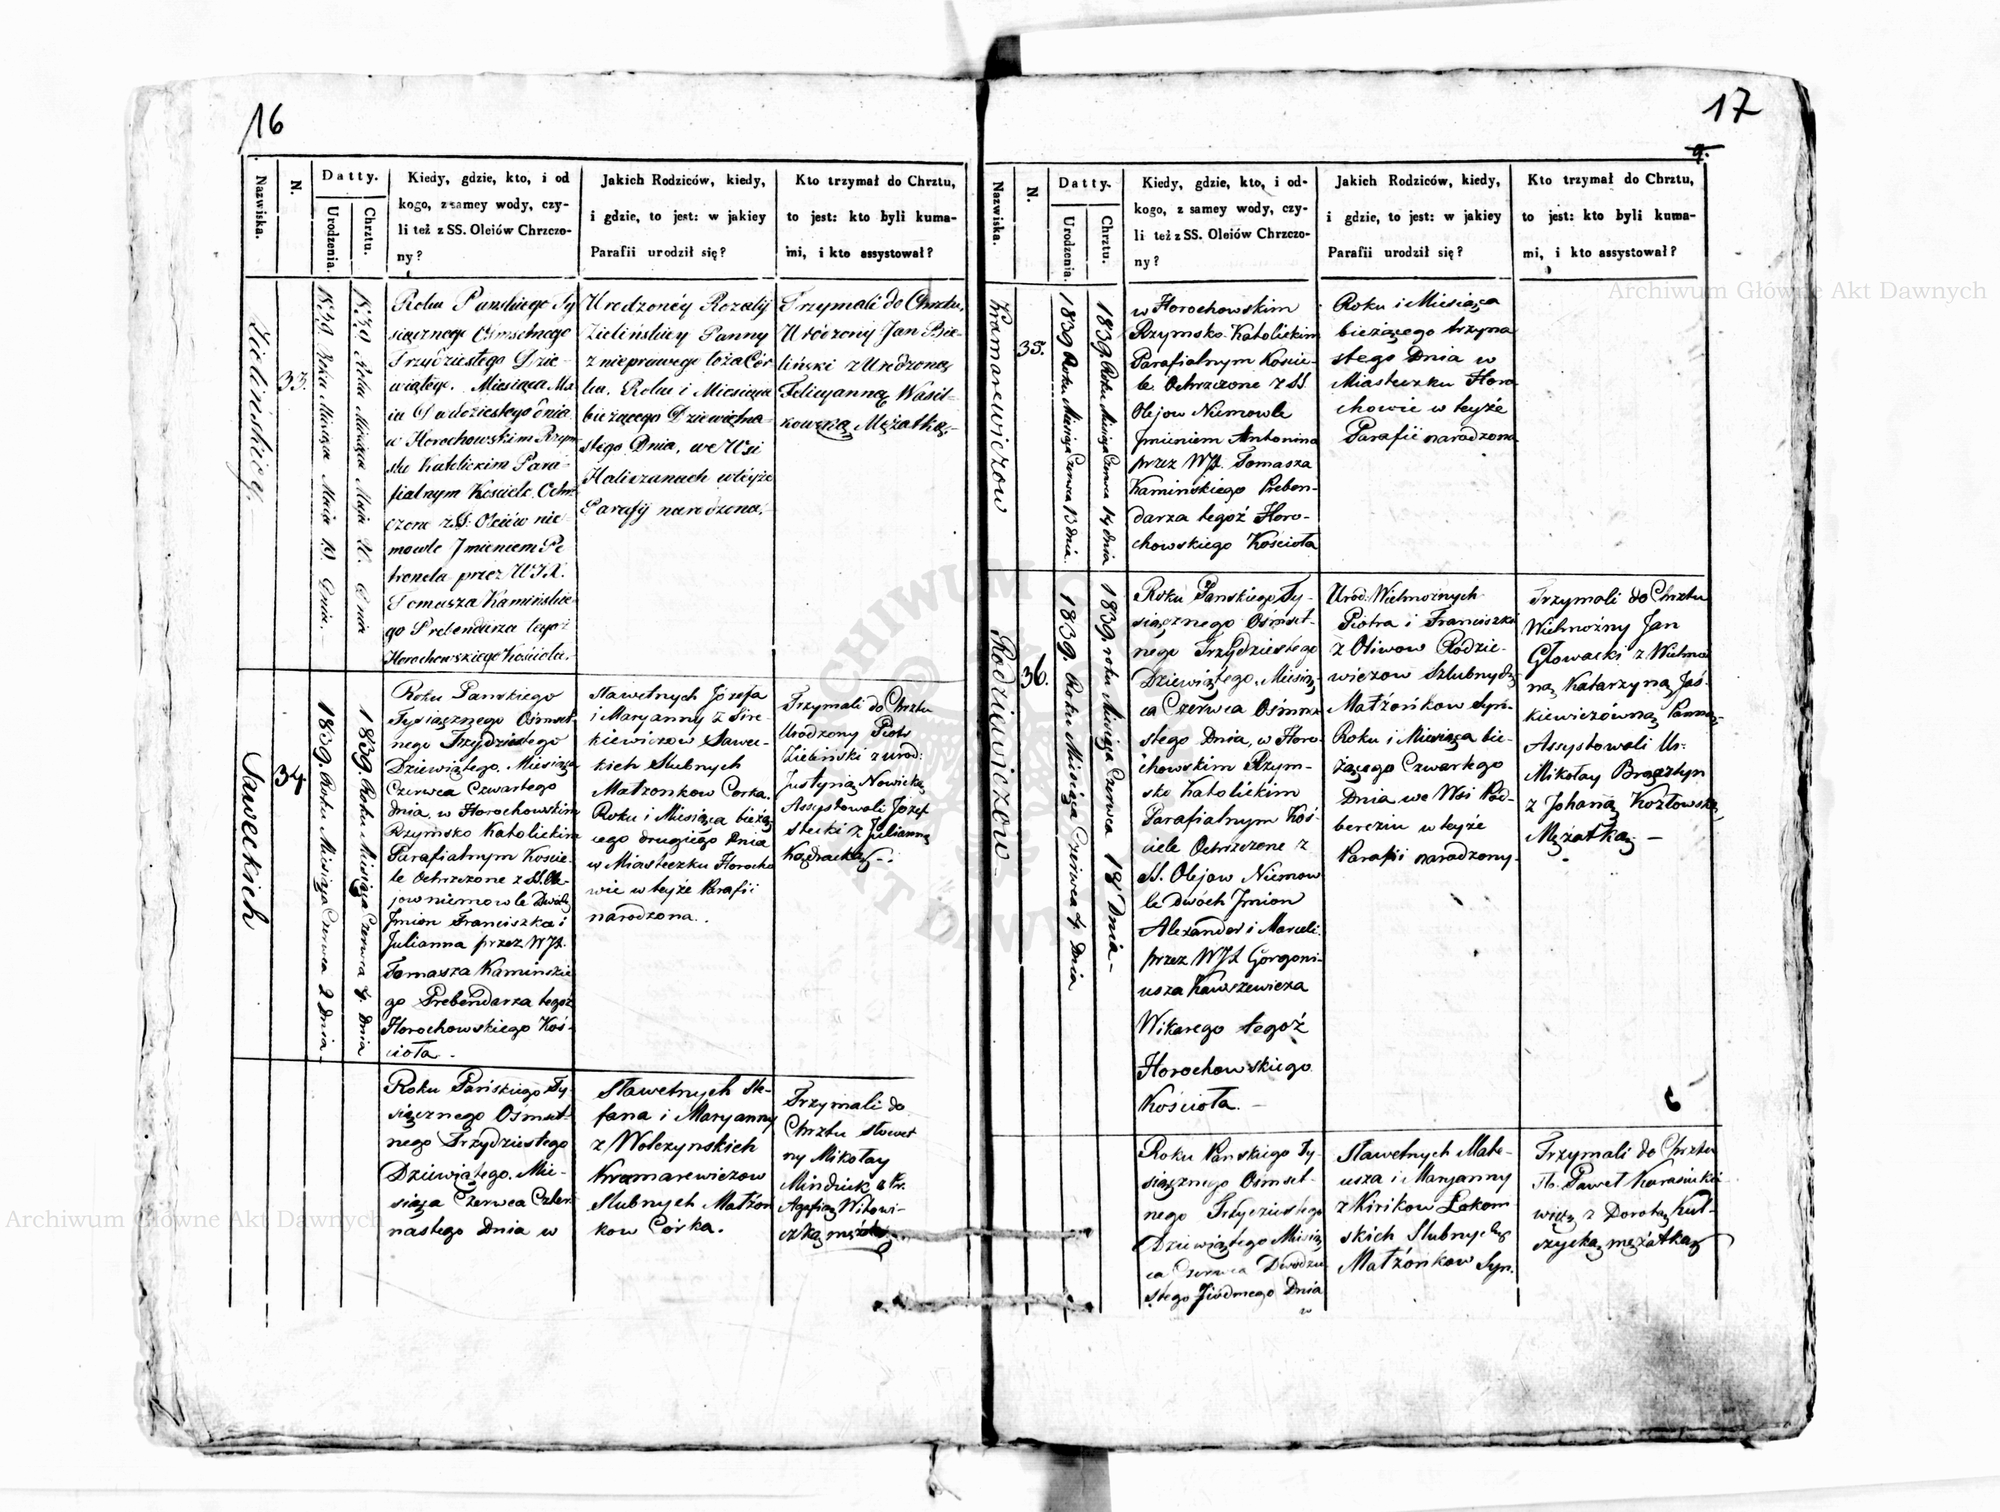 16
Nazwiska.
N.
Datty.
Urodzenia.
Chrztu.
Kiedy, gdzie, kto, i od
kogo, z samey wody, czy-
li też z SS. Oleiów Chrzczo-
ny?
Jakich Rodziców, kiedy,
i gdzie, to jest: w jakiey
Parafii urodził się?
Kto trzymał do Chrztu,
to jest: kto byli kuma-
mi, i kto assystował?
Zielińskiey.
33.
1839 Roku Miesiąca Maia 19. Dnia.
1839 Roku Miesiąca Maia 20. Dnia
Roku Panskiego Ty
siącznego Osmsetnego
Trzydziestego Dzie-
wiątego. Miesiąca Ma
ia Dwudziestego Dnia
w Horochowskim Rzym
sko Katolickim Para-
fialnym Kosciele. Ochrz
czone z SS: Oleiów nie-
mowle Imieniem Pe
tronela przez WJX.
Tomasza Kamińskie
go Prebendarza tegoż
Horochowskiego Kościoła.
Urodzoney Rozalij
Zielińskiey Panny
z nieprawego łoża Cór
ka. Roku i Miesiąca
bieżącego Dziewiętna-
stego Dnia, we Wsi
Haliczanach w teyże
Parafij narodzona.
Trzymali do Chrztu,
Urodzony Jan Bie-
liński z Urodzoną
Felicyanną Wasil-
kowską Mężatką.-
Saweckich
34.
1839. Roku Miesiąca Czerwca 2 Dnia
1839. Roku Miesiąca Czerwca 4. Dnia
Roku Panskiego
Tysiącznego Osmset-
nego Trzydziestego
Dziewiątego. Miesiąca
Czerwca Czwartego
Dnia, w Horochowskim
Rzymsko Katolickim
Parafialnym Koscie-
le Ochrzczone z SS. Ole-
jow niemowle Dwóch
Imion Franciszka i
Julianna przez WJX.
Tomasza Kamińskie
go Prebendarza tegoż
Horochowskiego Koś-
cioła -
Sławetnych Józefa
i Maryanny z Sire-
kiewiczow Sawec-
kich Slubnych
Matzonkow Corka.
Roku i Miesiąca bieżą
cego drugiego Dnia
w Miasteczku Horocho
wie w teyże Parafii
narodzona.
Trzymali do Chrztu
Urodzony Piotr
Zieliński z urod:
Justyną Nowicką
Assystowali Józef
z Julianną
Roku Pańskiego Ty-
siącznego Ośmset-
nego Trzydziestego
Dziewiątego. Mie-
siąca Czerwca Czter-
nastego Dnia w
Sławetnych Ste-
fana i Maryanny
z Wolczynskich
Kramarewiczow
Slubnych Matżon
kow Córka.
Trzymali do
Chrztu Sławet
ny Mikołay
Mindiuk
Agafią Witowi-
czką mężatką
17
9.
Nazwiska.
N.
Datty.
Urodzenia.
Chrztu.
Kiedy, gdzie, kto, i od-
kogo, z samey wody, czy-
li też z SS. Oleiów Chrzczo-
ny?
Jakich Rodziców, kiedy,
i gdzie, to jest: w jakiey
Parafii urodził się?
Kto trzymał do Chrztu,
to jest: kto byli kuma-
mi, i kto assystował?
Kramarewiczow
35.
1839 Roku Miesiąca Czerwca 13 dnia
1839. Roku Miesiąca Czerwca 14 dnia
w Horochowskim
Rzymsko-Katolickim
Parafialnym Koscie-
le Ochrzczone z SS.
Olejow Niemowle
Imieniem Antonina
przez WJX. Tomasza
Kamińskiego Preben-
darza tegoż Horo-
chowskiego Kościoła
Roku i Miesiąca
bieżącego trzyna
stego Dnia w
Miasteczku Horo
chowie w teyże
Parafii narodzona
Rodziewiczow -
36.
1839. Roku Miesiąca Czerwca 4 Dnia
1839. roku Miesiąca Czerwca 18 Dnia -
Roku Panskiego Ty-
siącznego Osmset-
nego Trzydziestego
Dziewiątego. Miesią
ca Czerwca Osmna
stego Dnia, w Horo-
chowskim Rzym-
sko Katolickim
Parafialnym Koś-
ciele Ochrzczone z
SS. Olejow Niemow
le Dwóch Imion
Alexander i Marceli.
przez WJX Gorgoni-
usza Kawszewicza
Wikarego tegoż
Horochowskiego
Kościoła. -
Urod: Wielmożnych
Piotra i Franciszki
z Oliwow Rodzie-
wiczow Szlubnych
Matżonkow Syn.
Roku i Miesiąca bie-
żącego Czwartego
Dnia we Wsi Pod-
bereziu w teyże
Parafii narodzony.
Trzymali do Chrztu
Wielmożny Jan
Głowacki z Wielmo
ną Katarzyną Jaś-
kiewiczówną Panną.
Assystowali Ur:
Mikołay Brąsztyn
z Johaną Kozłowską
Mężatką -
Roku Panskiego Ty-
siącznego Osmset-
nego Trzydziestego
Dziewiątego Miesią
ca Czerwca Dwudzie
stego Siódmego Dnia
w
Sławetnych Mate-
usza i Maryanny
z Kirikow Łakom-
skich Slubnych
Matżonkow Syn.
Trzymali do Chrztu
Sł. Paweł Karasiuki-
wicz z Dorotą Kul-
czycką mężatką
Archiwum Główne Akt Dawnych
Archiwum Główne Akt Dawnych
ARCHIWUM
AKT DAWNYCH